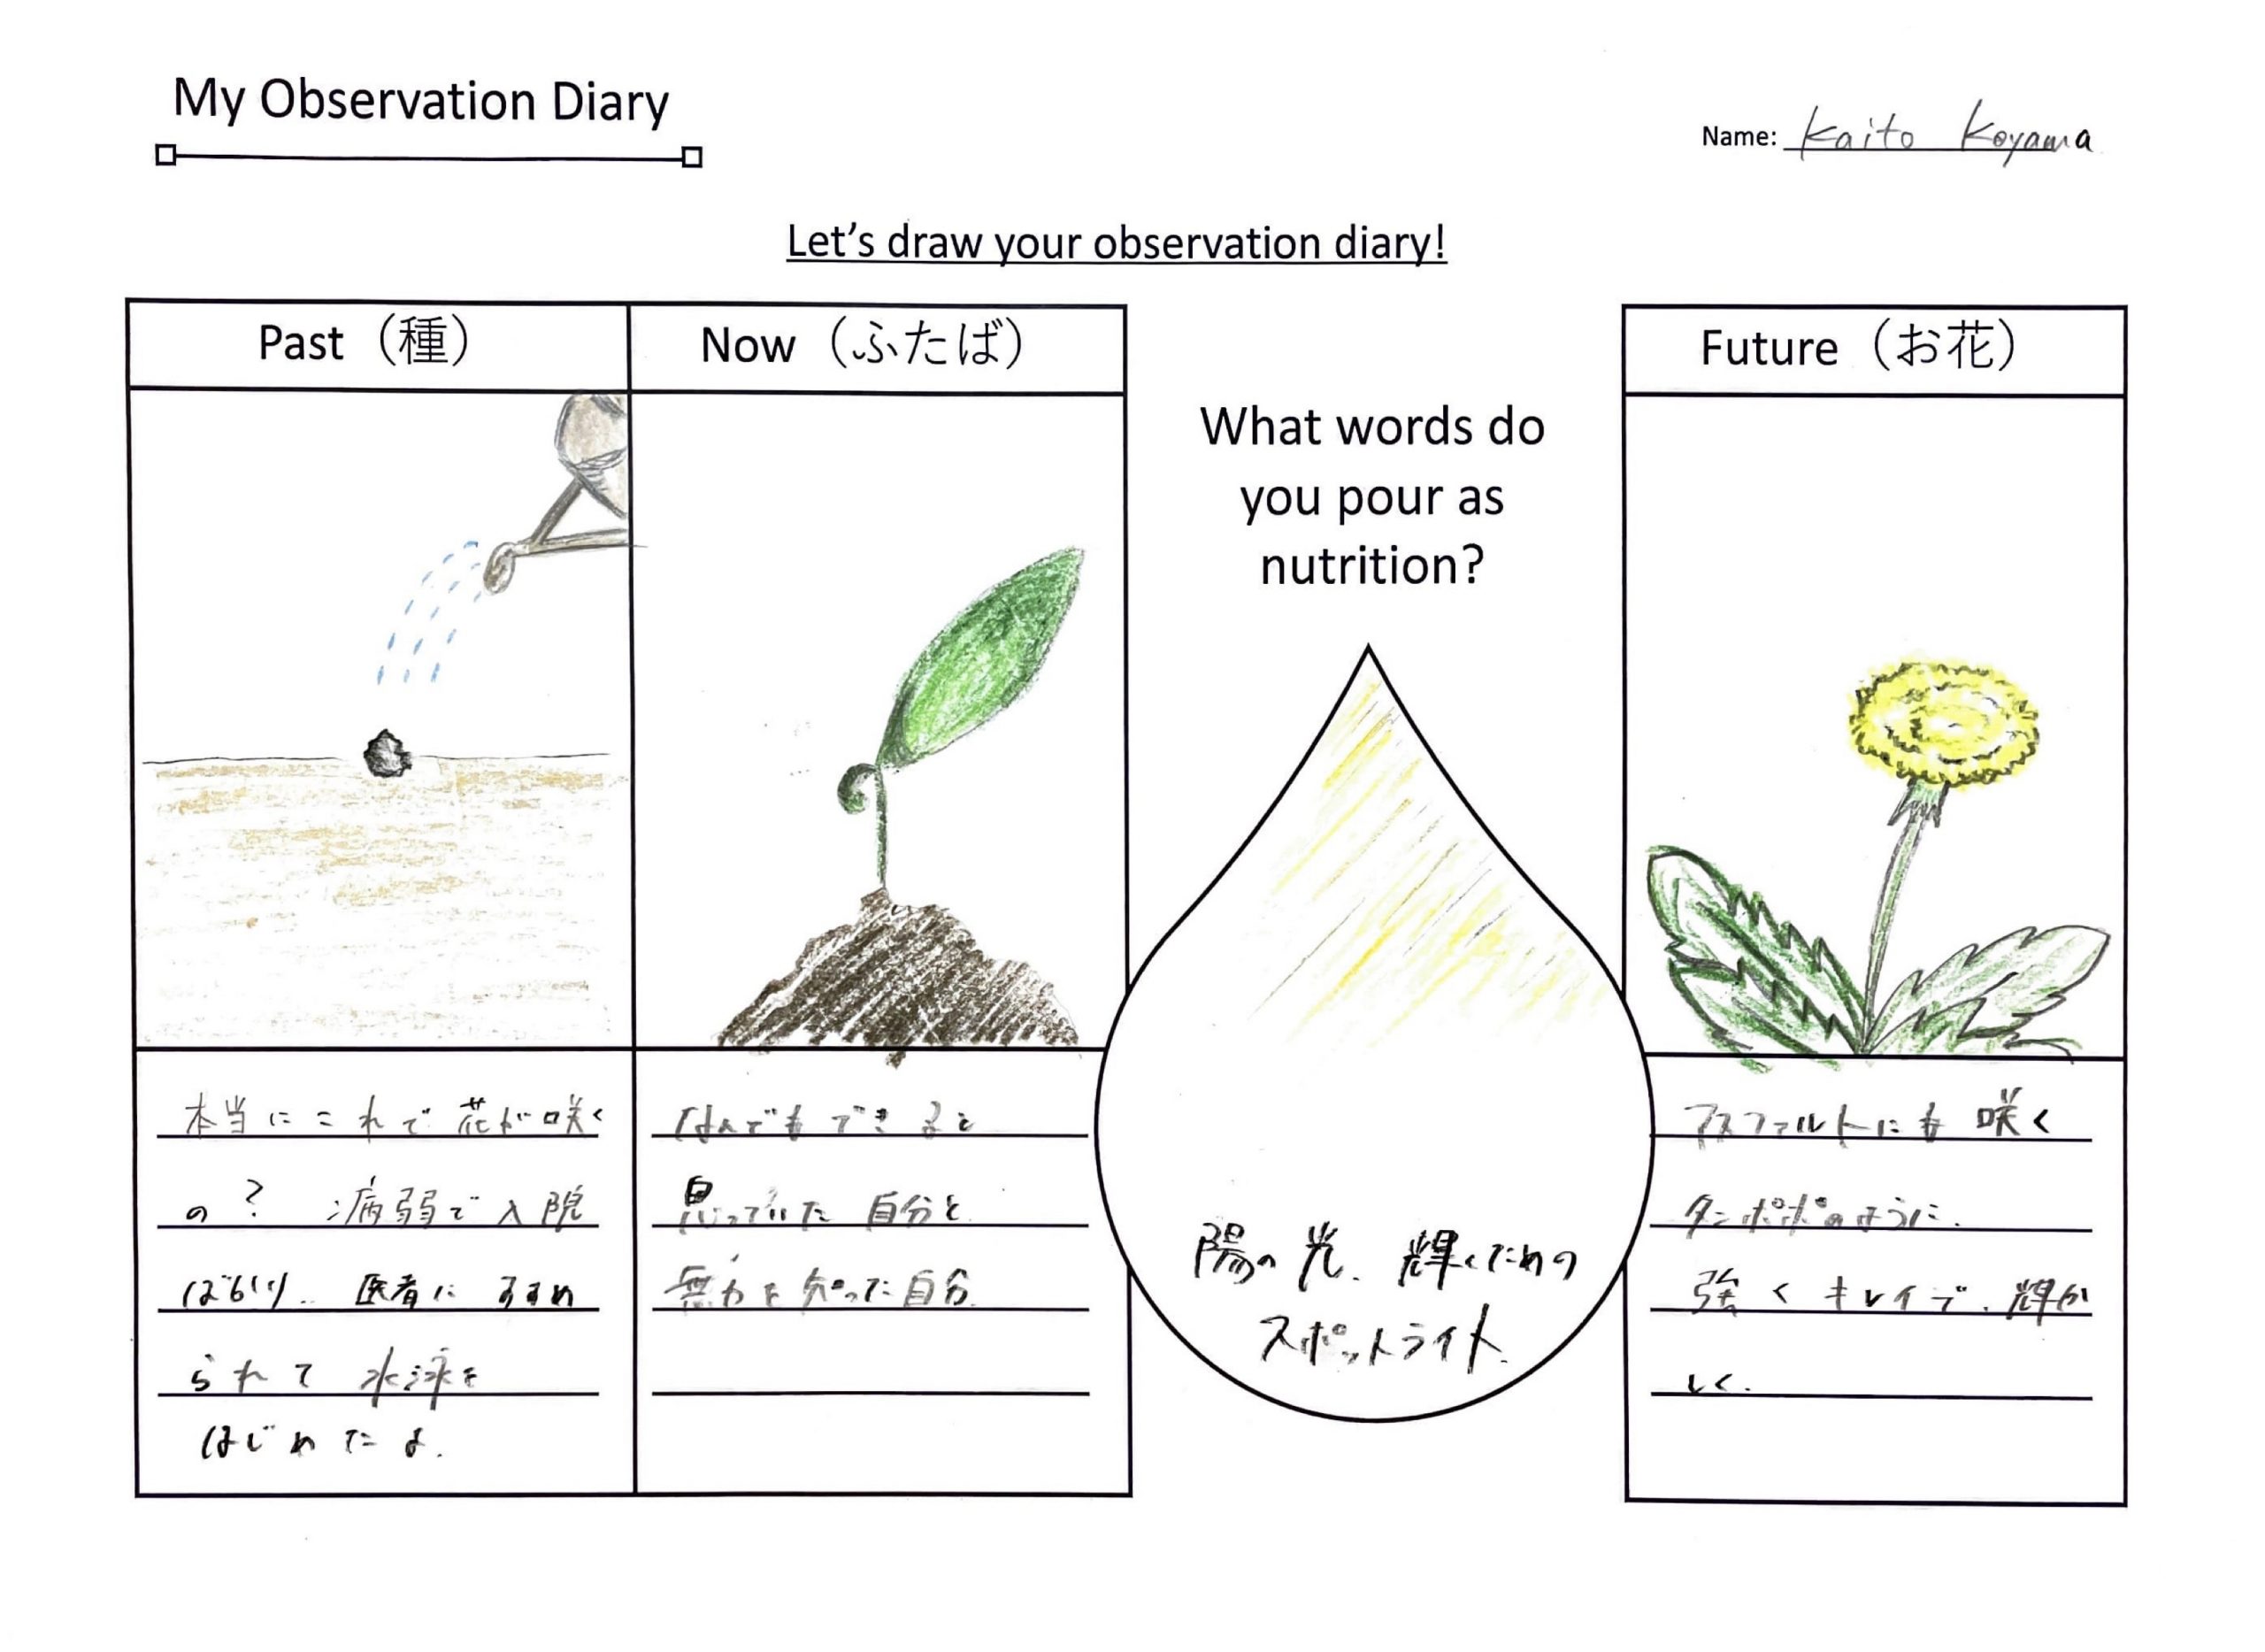 My Observation Diary
Name: Kaito Koyama
Let's draw your observation diary!
Past（種）
Now（ふたば）
What words do
you pour as
nutrition?
Future（お花）
本当にこれで花が咲く
の？ 病弱で入院
ばかり.. 医者にすすめ
られて 水泳を
はじめたよ.
なんでもできると
思っていた 自分と
無力を知った自分.
陽の光. 輝くための
スポットライト.
アスファルトにも 咲く
タンポポのように.
強くキレイで. 輝か
しく.